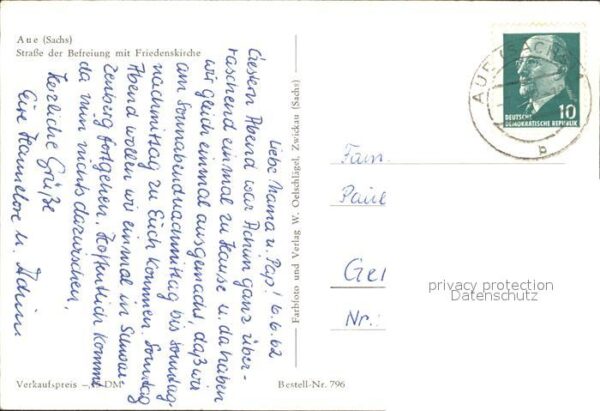 Aue (Sachs)
Straße der Befreiung mit Friedenskirche
Liebe Mama u. Pap! 6.6.62
Gestern Abend war Achim ganz über-
raschend einmal zu Hause u. da haben
wir gleich einmal ausgemacht, daß wir
am Sonnabendnachmittag bis Sonntag-
nachmittag zu Euch kommen. Sonntag
Abend wollen wir einmal in
fortgehen. Hoffentlich kommt
da nun nichts dazwischen.
Herzliche Grüße
Eure Hannelore u. Achim
Verkaufspreis DM
Farbfoto und Verlag W. Oetschlägel, Zwickau (Sachs)
Bestell-Nr. 796
AUE (SACHS)
b
10
DEUTSCHE
DEMOKRATISCHE REPUBLIK
Fam.
Paul
Nr.:
privacy protection
Datenschutz